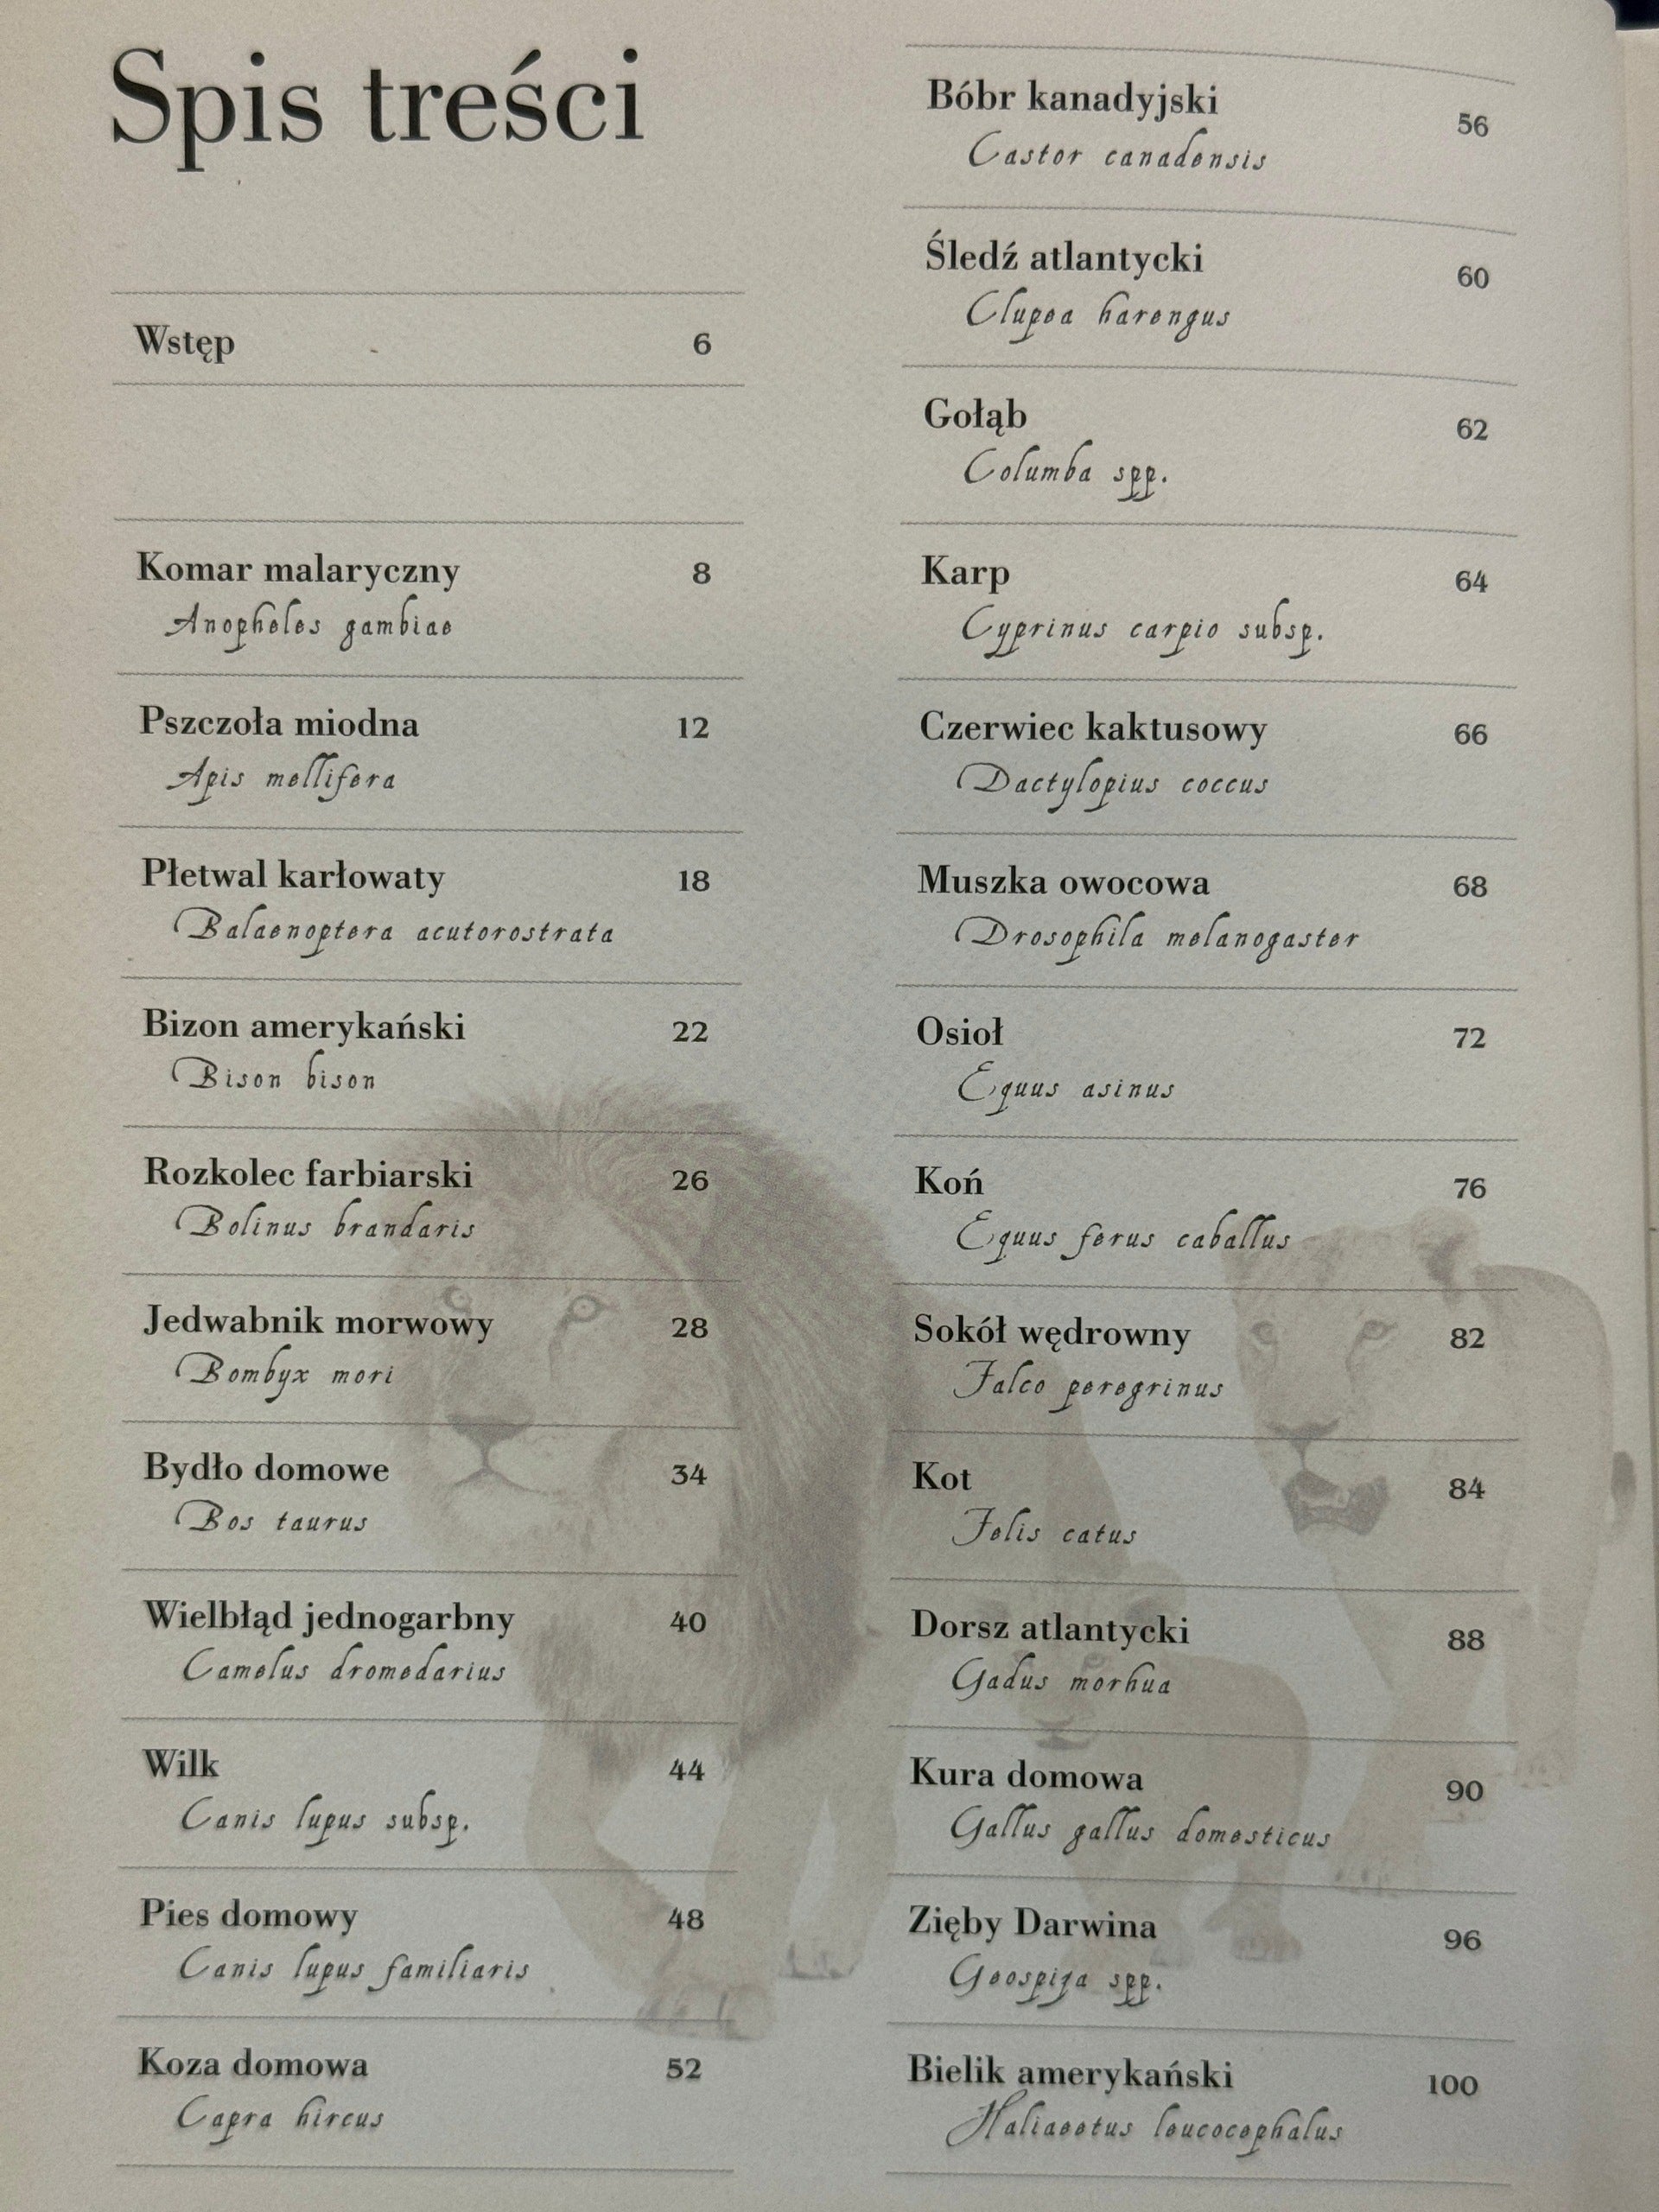 Spis treści
Wstęp 6
Komar malaryczny 8
Anopheles gambiae
Pszczoła miodna 12
Apis mellifera
Płetwal karłowaty 18
Balaenoptera acutorostrata
Bizon amerykański 22
Bison bison
Rozkolec farbiarski 26
Bolinus brandaris
Jedwabnik morwowy 28
Bombyx mori
Bydło domowe 34
Bos taurus
Wielbłąd jednogarbny 40
Camelus dromedarius
Wilk 44
Canis lupus subsp.
Pies domowy 48
Canis lupus familiaris
Koza domowa 52
Capra hircus
Bóbr kanadyjski 56
Castor canadensis
Śledź atlantycki 60
Clupea harengus
Gołąb 62
Columba spp.
Karp 64
Cyprinus carpio subsp.
Czerwiec kaktusowy 66
Dactylopius coccus
Muszka owocowa 68
Drosophila melanogaster
Osioł 72
Equus asinus
Koń 76
Equus ferus caballus
Sokół wędrowny 82
Falco peregrinus
Kot 84
Felis catus
Dorsz atlantycki 88
Gadus morhua
Kura domowa 90
Gallus gallus domesticus
Zięby Darwina 96
Geospiza spp.
Bielik amerykański 100
Haliaeetus leucocephalus